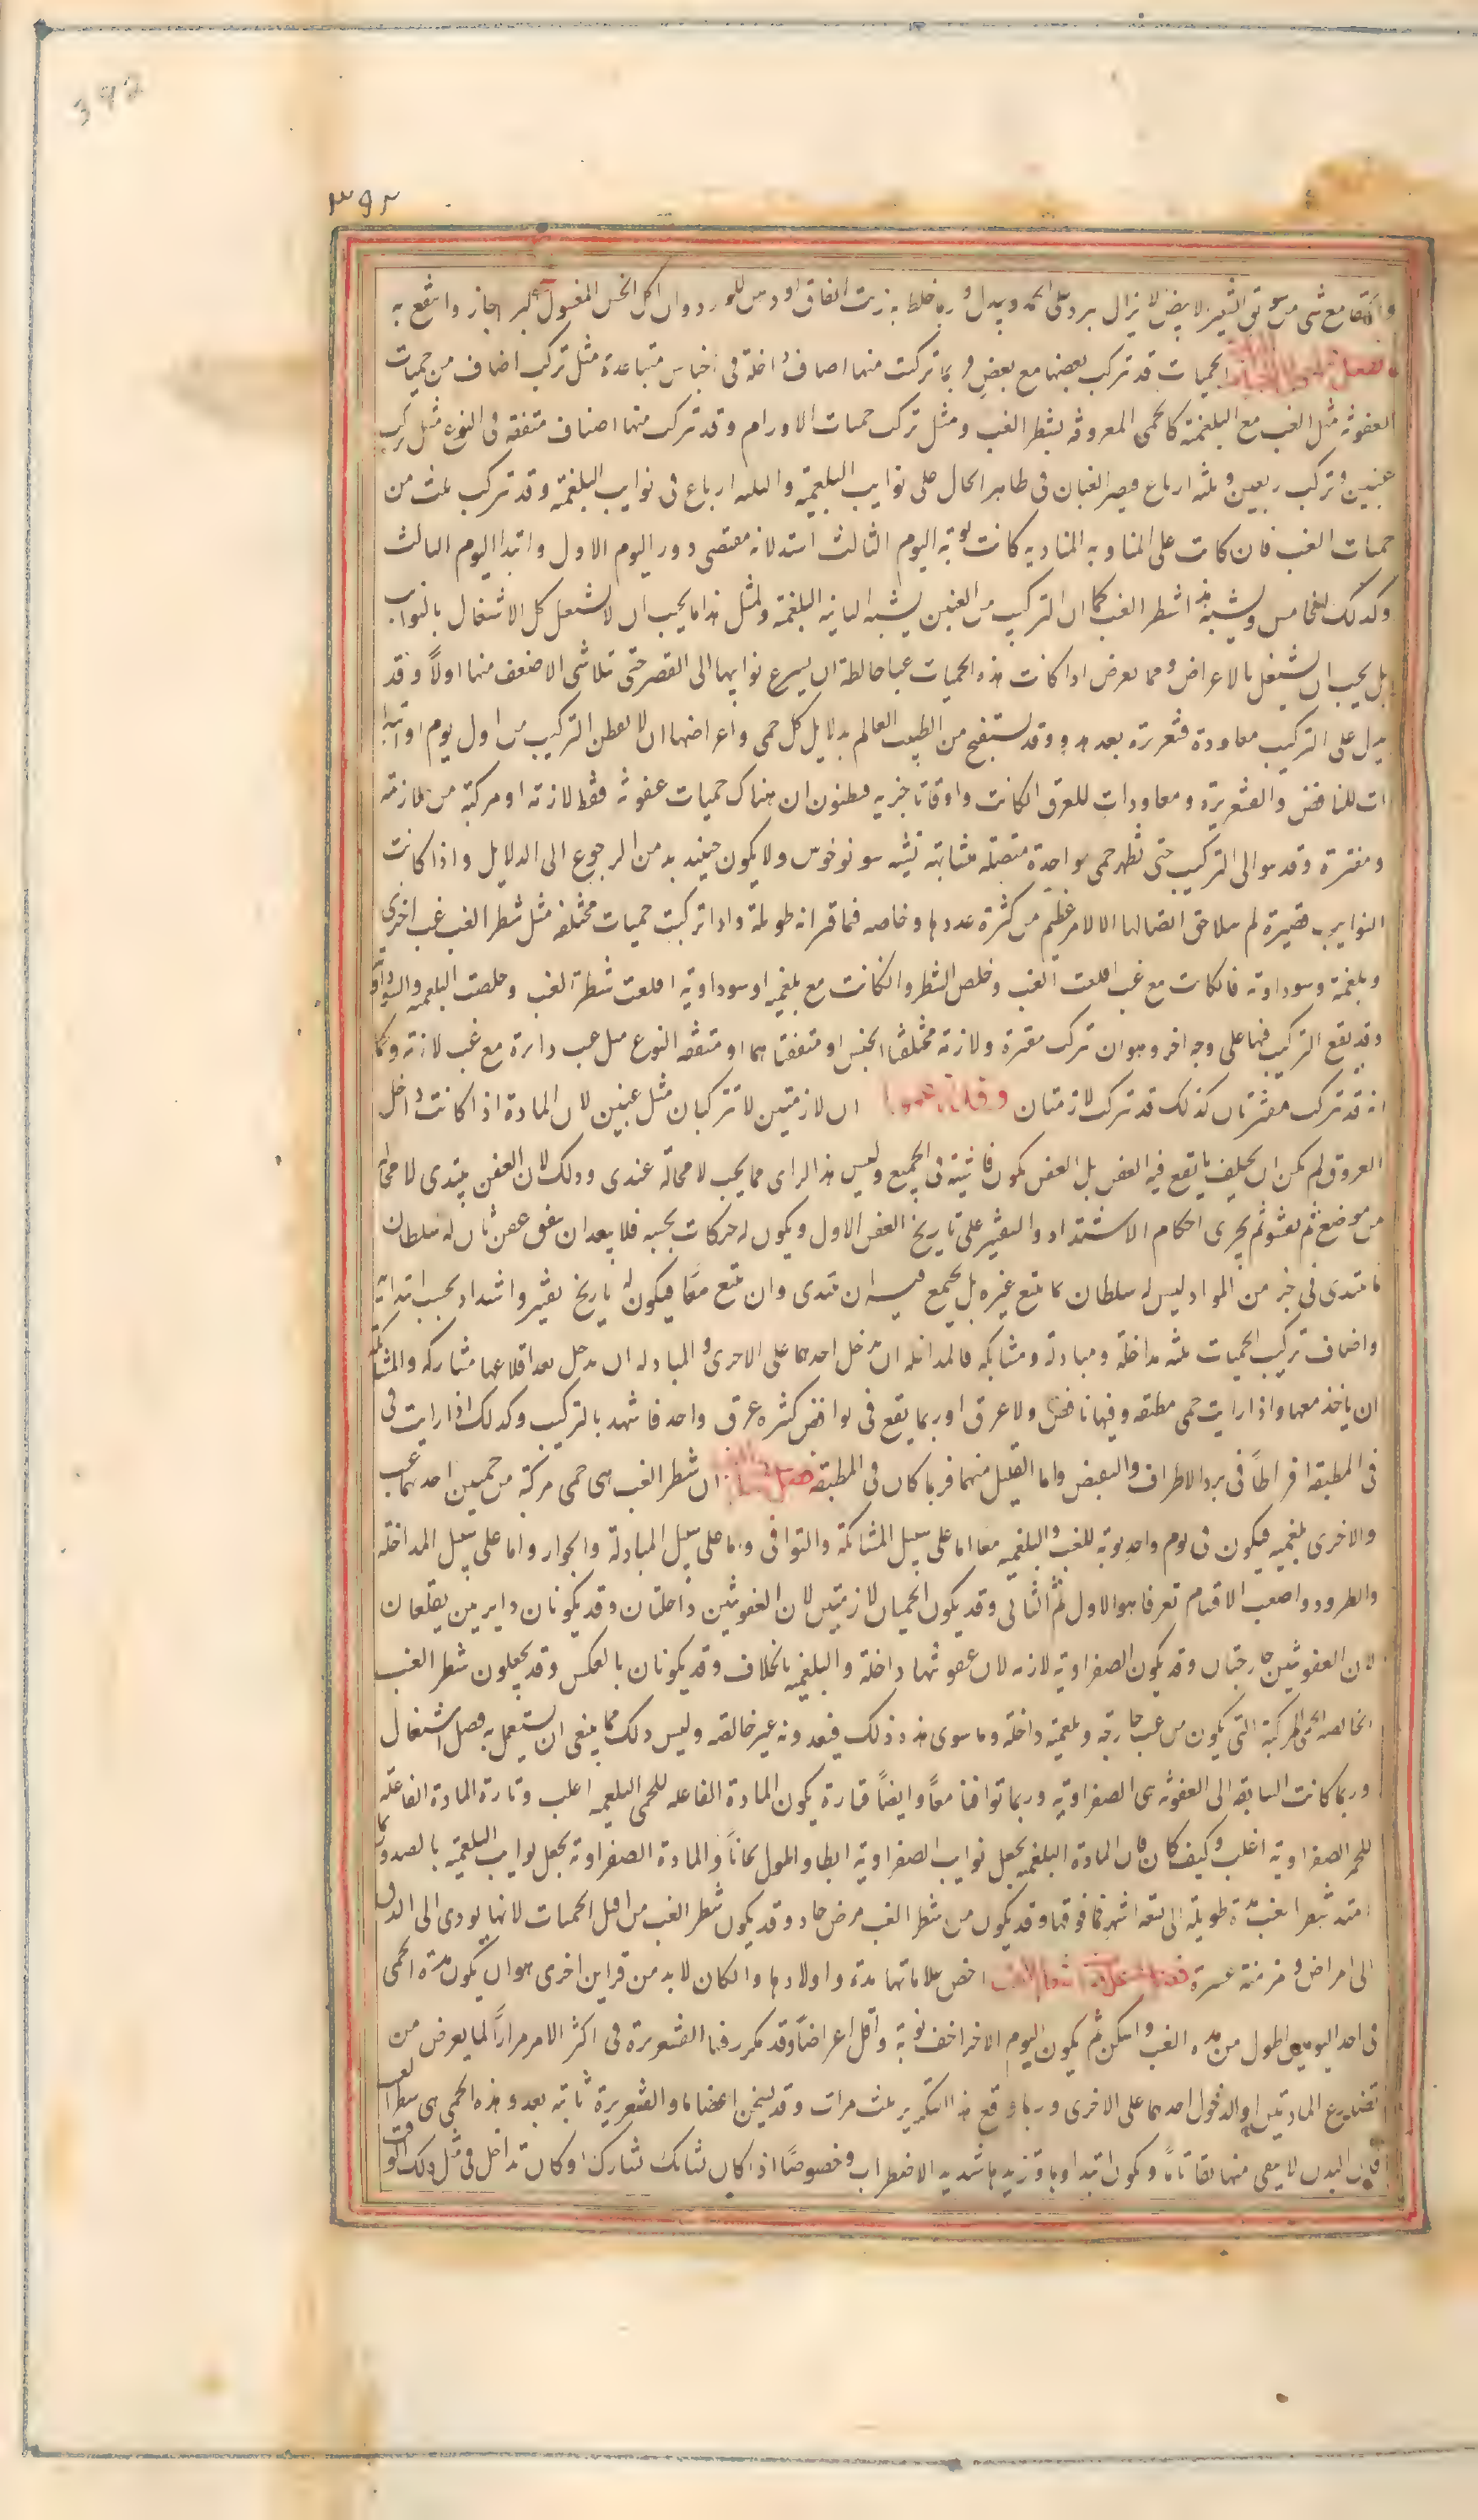 392
٣٩٢
الحميات قد تركب بعضها مع بعض و ربما تركبت منها اصناف داخلة فى اجناس متباعدة مثل تركب اصناف من حميات
العفونة مثل الغب مع البلغمية كالحمى المعروفة بشطر الغب ومثل تركب حميات الاورام وقد تركب منها اصناف متفقة فى النوع مثل تركب
غبين و تركب ربعين و ثلثه ارباع فيصير الغبان فى ظاهر الحال على نوايب البلغمية والثلثه ارباع فى نوايب البلغمية وقد تركب ثلث من
حميات الغب فان كانت على المناوبه المناديه كانت نوبة اليوم الثالث اشد لانه مقتضى دور اليوم الاول وابتدا اليوم الثالث
وكذلك للخامس ويشبه هذا شطر الغب كما ان التركيب من الغبين يشبه النايبة البلغمية ولمثل هذا ما يجب ان لا يشتغل كل الاشتغال بالنوايب
بل يجب ان يشتغل بالاعراض ومما يعرض اذا كانت هذه الحميات غبا خالطة ان يسرع نوايبها الى القصر حتى تلاشى الاضعف منها اولاً وقد
يدل على التركيب معاودة قشعريرة بعد هدو وقد يستقبح من الطبيب العالم بدلايل كل حمى واعراضها ان لا يفطن التركيب من اول يوم او
ات للنافض والقشعريرة ومعاودات للعرق الكانت واوقاتا جزيه فيظنون ان هناك حميات عفونة فقط لازمة او مركبة من لازمة
ومفترة وقد يتوالى التركيب حتى تظهر حمى واحدة متصلة متشابهة تشبه سونوخوس ولا يكون حينيذ بد من الرجوع الى الدلايل واذا كانت
النوايب قصيرة لم يتلاحق اتصالها الا لامر عظيم من كثرة عددها وخاصه فما قترانه طويلة واذا تركبت حميات مختلفه مثل شطر الغب غب اخرى
وبلغمية وسوداوية فان كانت مع غب اقلعت الغب وخلص الشطر وان كانت مع بلغمية او سوداوية اقلعت شطر الغب وخلصت البلغميه والسوداوية
وقد يقع التركيب فيها على وجه اخر وهو ان تركب مفترة ولازمة مختلفتا الجنس او متفقتاهما او متفقه النوع مثل غب دايرة مع غب لازمة وكما
انه قد تركب مفترتان كذلك قد تركب لازمتان ان لازمتين لا تتركبان مثل غبين لان المادة اذا كانت داخل
العروق لم يمكن ان يختلف ما يقع فيه العفن بل العفن يكون فاشية فى الجميع وليس هذا الراى مما يجب لا محالة عندى وذلك لان العفن يبتدى لا محالة
من موضع ثم يفشو ثم يجرى احكام الاشتداد والتفتير على تاريخ العفن الاول ويكون له حركات بحسبه فلا يبعد ان يتفق عفن ثان له سلطان
ما يبتدى فى جزء من المواد ليس له سلطان ما يتبع غيره بل يجتمع فيه ان يبتدى وان يتبع معا فيكون له تاريخ تفتير واشتداد بحسب ابتدايه
واصناف تركيب الحميات ثلثه مداخلة ومبادلة ومشابكه فالمداخله ان يدخل احدهما على الاخرى و المبادله ان يدخل بعد اقلاعها مشاركه والمشابكة
ان ياخذ معها واذا رايت حمى مطبقه وفيها نافض ولا عرق او ربما يقع فى نوافض كثيره عرق واحد فاشهد بالتركيب وكذلك اذا رايت فى
فى المطبقة افراطاً فى برد الاطراف والتقبض واما القليل منهما فربما كان فى المطبقة ان شطر الغب هى حمى مركبة من حميين احدهما غب
والاخرى بلغمية فيكون فى يوم واحد نوبة للغب والبلغميه معا اما على سبيل المشابكة والتوافى واما على سبيل المبادلة والجوار واما على سبيل المداخلة
والطرود واصعب الاقسام تعرفا هو الاول ثم الثانى وقد يكون الحميان لازمتين لان العفونتين داخلتان وقد يكونان دايرتين يقلعان
لان العفونتين خارجتان وقد يكون الصفراوية لازمه لان عفونتها داخلة والبلغميه بالخلاف وقد يكونان بالعكس وقد يجعلون شطر الغب
الخالصه الحمى المركبة التى يكون من غب خارجة وبلغمية داخلة وما سوى هذه ذلك فيعدونه غير خالصه وليس ذلك مما ينبغى ان يستعمل به فصل اشتغال
وربما كانت السابقه الى العفونه هى الصفراوية وربما توافتا معاً وايضاً فتارة يكون المادة الفاعله للحمى البلغميه اغلب وتارة المادة الفاعلة
للحمى الصفراوية اغلب وكيف كان فان المادة البلغميه يجعل نوايب الصفراوية ابطا واطول لبثا والمادة الصفراوية يجعل نوايب البلغمية بالضد وربما
امتد شطر الغب مدة طويلة الى تسعة اشهر فما فوقها وقد يكون من شطر الغب مرض حاد وقد يكون شطر الغب من اقتل الحميات لانها يودى الى الدق
الى امراض و مزمنة عسرة اخص علاماتها مدة وادوارها وان كان لا بد من قراين اخرى هو ان يكون مدة الحمى
فى احد اليومين اطول من مدة الغب واسكن ثم يكون اليوم الاخر اخف نوبة واقل اعراضاً وقد يكرر فيها القشعريرة فى اكثر الامر مراراً لما يعرض من
تصارع المادتين والدخول احدهما على الاخرى وربما وقع هذا التكرير ثلث مرات وقد يسخن اعضاؤها والقشعريرة ثابتة بعد وهذه الحمى هى شطر الغب
البدن لا ينقى منها نقا تاماً ويكون ابتداوها وتزيدها شديد الاضطراب وخصوصًا اذا كان تشابك تشارك او كان تداخل فى مثل ذلك الوقت